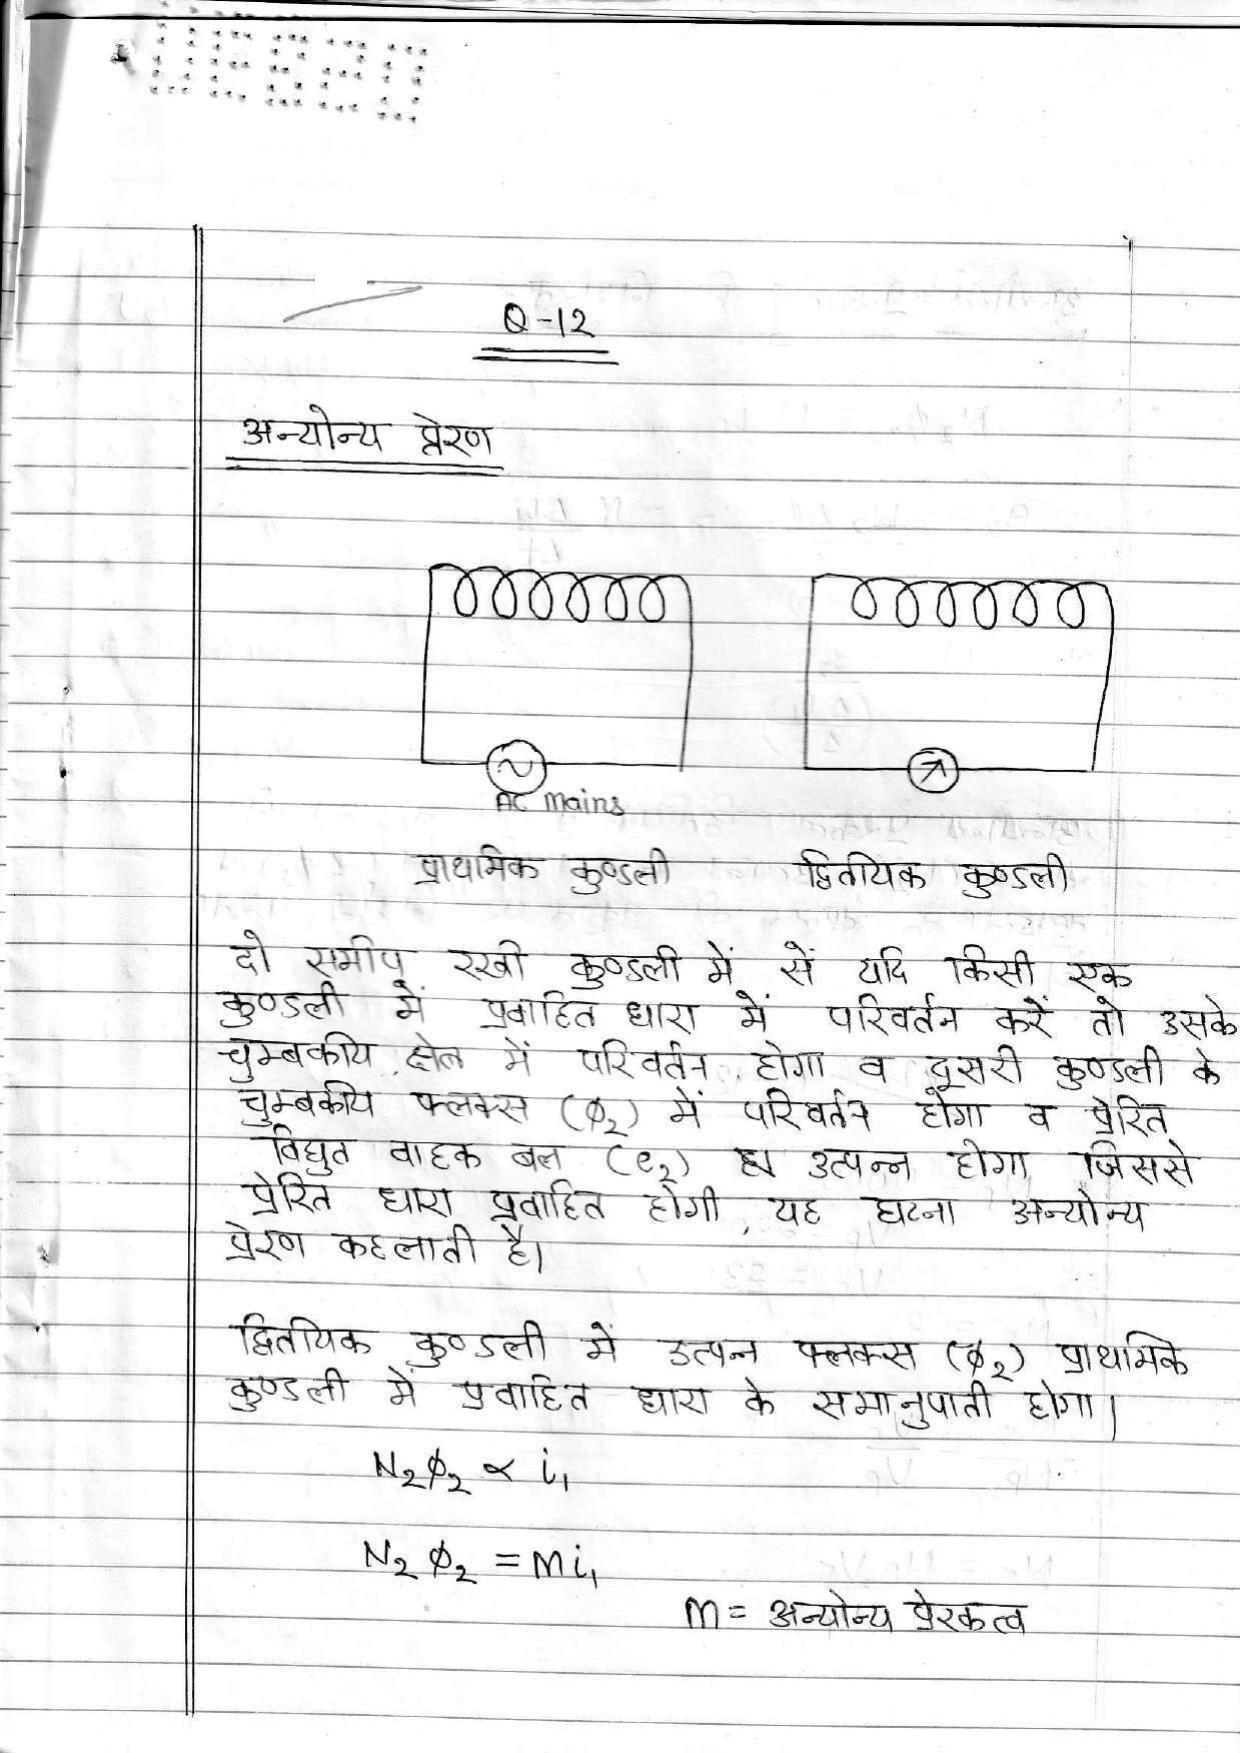 Q-12
अन्योन्य प्रेरण
AC mains
प्राथमिक कुण्डली द्वितीयिक कुण्डली
दो समीप रखी कुण्डली में सें यदि किसी एक
कुण्डली में प्रवाहित धारा में परिवर्तन करें तो उसके
चुम्बकीय क्षेत्र में परिवर्तन होगा व दूसरी कुण्डली के
चुम्बकीय फ्लक्स (ϕ₂) में परिवर्तन होगा व प्रेरित
विद्युत वाहक बल (e₂) उत्पन्न होगा जिससे
प्रेरित धारा प्रवाहित होगी, यह घटना अन्योन्य
प्रेरण कहलाती है।
द्वितीयिक कुण्डली में उत्पन्न फ्लक्स (ϕ₂) प्राथमिक
कुण्डली में प्रवाहित धारा के समानुपाती होगा।
N₂ϕ₂ ∝ i₁
N₂ϕ₂ = Mi₁
M = अन्योन्य प्रेरकत्व